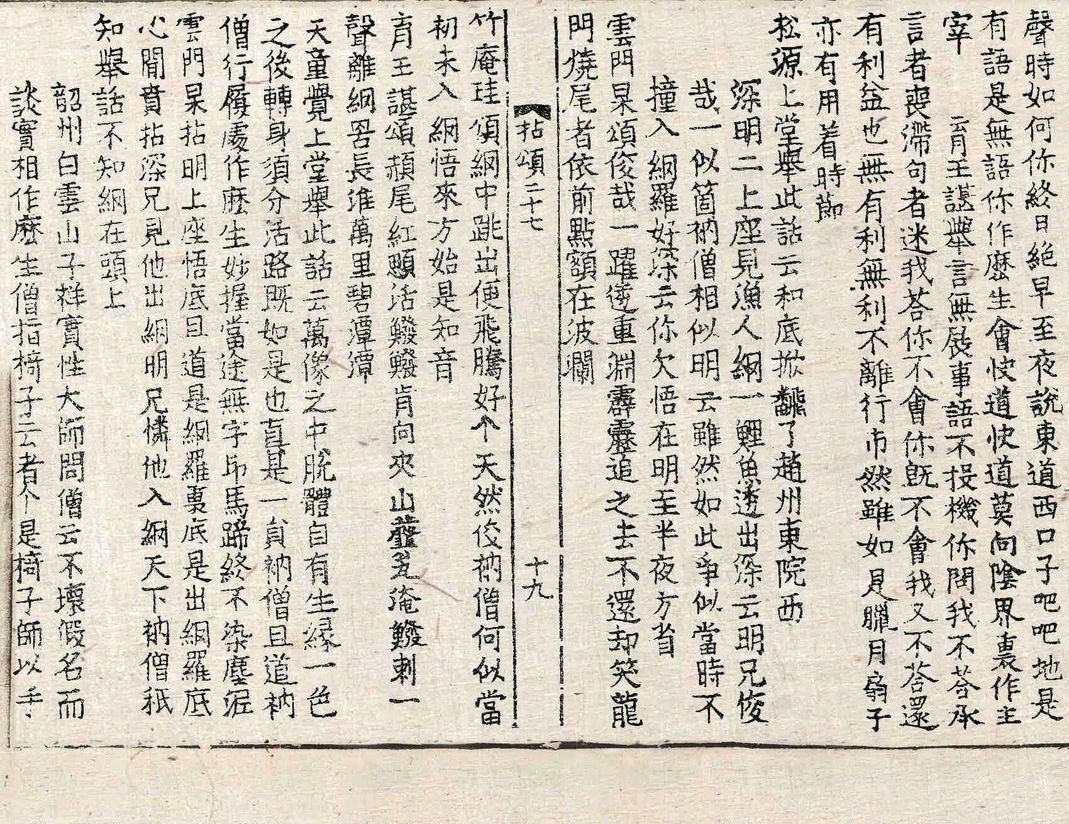 聲時如何你終日絶早至夜說東道西口子吧吧地是
有語是無語你作麽生會快道快道莫向陰界裏作主
宰　育王諶擧言無展事語不投機你問我不荅承
言者喪滯句者迷我荅你不會你旣不會我又不荅還
有利益也無有利無利不離行市然雖如是臘月扇子
亦有用着時節
松源上堂擧此話云和底掀飜了趙州東院西
深明二上座見漁人網一鯉魚透出深云明兄俊
哉一似箇衲僧相似明云雖然如此爭似當時不
撞入網羅好深云你欠悟在明至半夜方省
雲門杲頌俊哉一躍透重淵霹靂追之去不還却笑龍
門燒尾者依前點額在波瀾
拈頌二十七　十九
竹庵珪頌網中跳出便飛騰好个天然俊衲僧何似當
初未入網悟來方始是知音
育王諶頌赬尾紅顋活鱍鱍肯向夾山虀瓮淹鱍剌一
聲離網罟長淮萬里碧潭潭
天童覺上堂擧此話云萬像之中脫體自有生緣一色
之後轉身須分活路旣如是也眞是一員衲僧且道衲
僧行履處作麽生妙握當途無字印馬蹄終不染塵泥
雲門杲拈明上座悟底且道是網羅裏底是出網羅底
心聞賁拈深兄見他出網明兄憐他入網天下衲僧秖
知擧話不知網在頭上
韶州白雲山子祥實性大師問僧云不壞假名而
談實相作麽生僧指椅子云者个是椅子師以手